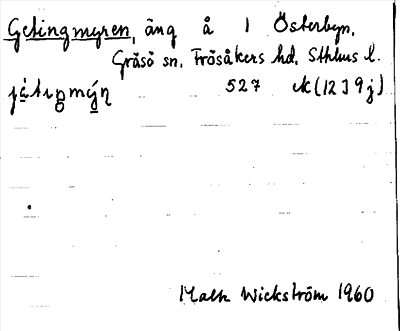 Getingmyren, äng å 1 Österbyn,
Gräsö sn. Frösåkers hd. Sthlms l.
527 ek (12 J 9 j)
Malte Wickström 1960